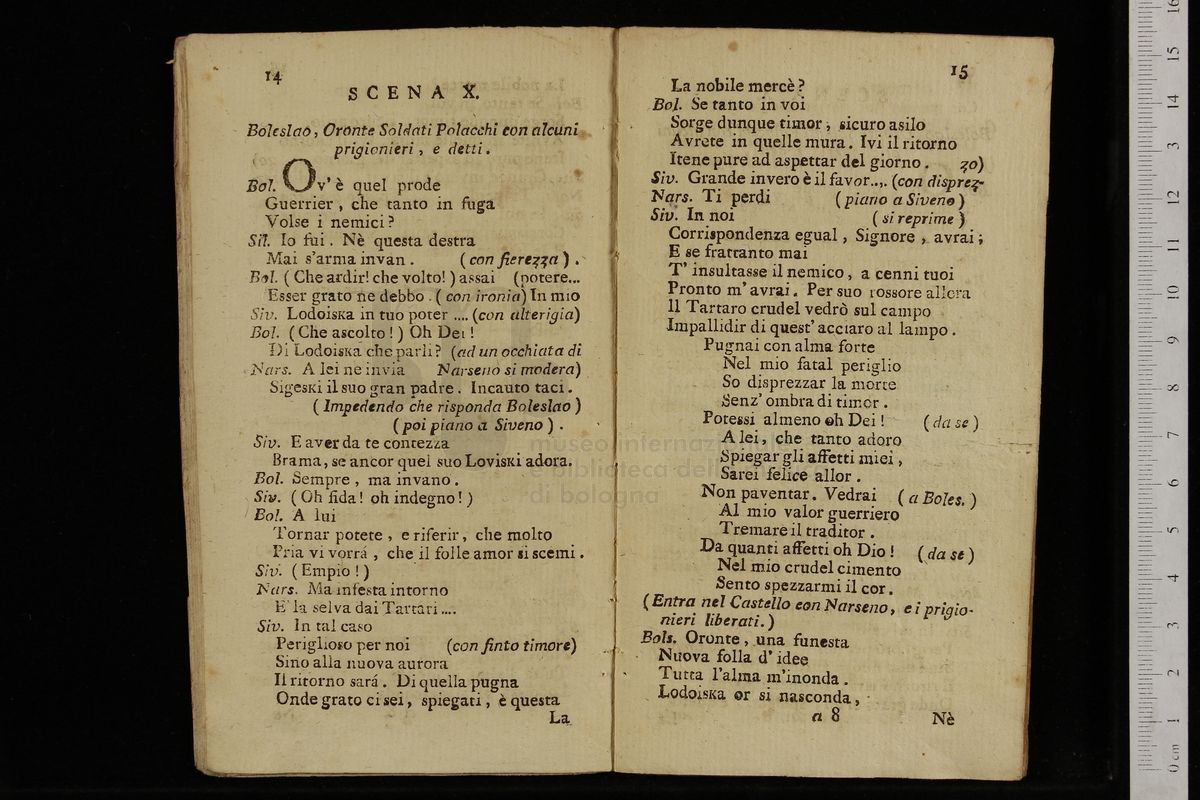 14
SCENA X.
Boleslao, Oronte Soldati Polacchi con alcuni
prigionieri, e detti.
Bol. Ov' è quel prode
Guerrier, che tanto in fuga
Volse i nemici?
Sil. Io fui. Nè questa destra
Mai s'arma invan. (con fierezza).
Bol. (Che ardir! che volto!) assai (potere...
Esser grato ne debbo. (con ironia) In mio
Siv. Lodoiska in tuo poter .... (con alterigia)
Bol. (Che ascolto!) Oh Dei!
Di Lodoiska che parli? (ad un occhiata di
Nars. A lei ne invia Narseno si modera)
Sigeski il suo gran padre. Incauto taci.
(Impedendo che risponda Boleslao)
(poi piano a Siveno).
Siv. E aver da te contezza
Brama, se ancor quel suo Loviski adora.
Bol. Sempre, ma invano.
Siv. (Oh fida! oh indegno!)
Bol. A lui
Tornar potete, e riferir, che molto
Pria vi vorrá, che il folle amor si scemi.
Siv. (Empio!)
Nars. Ma infesta intorno
E' la selva dai Tartari....
Siv. In tal caso
Periglioso per noi (con finto timore)
Sino alla nuova aurora
Il ritorno sará. Di quella pugna
Onde grato ci sei, spiegati, è questa
La
15
La nobile mercè?
Bol. Se tanto in voi
Sorge dunque timor, sicuro asilo
Avrete in quelle mura. Ivi il ritorno
Itene pure ad aspettar del giorno. zo)
Siv. Grande invero è il favor.... (con disprez-
Nars. Ti perdi (piano a Siveno)
Siv. In noi (si reprime)
Corrispondenza egual, Signore, avrai;
E se frattanto mai
T' insultasse il nemico, a cenni tuoi
Pronto m' avrai. Per suo rossore allora
Il Tartaro crudel vedrò sul campo
Impallidir di quest' acciaro al lampo.
Pugnai con alma forte
Nel mio fatal periglio
So disprezzar la morte
Senz' ombra di timor.
Potessi almeno oh Dei! (da se)
A lei, che tanto adoro
Spiegar gli affetti miei,
Sarei felice allor.
Non paventar. Vedrai (a Boles.)
Al mio valor guerriero
Tremare il traditor.
Da quanti affetti oh Dio! (da se)
Nel mio crudel cimento
Sento spezzarmi il cor.
(Entra nel Castello con Narseno, e i prigio-
nieri liberati.)
Bols. Oronte, una funesta
Nuova folla d' idee
Tutta l'alma m'inonda.
Lodoiska or si nasconda,
a 8 Nè